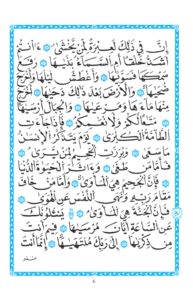 إِنَّ فِى ذَٰلِكَ لَعِبْرَةً لِّمَن يَخْشَىٰٓ ءَأَنتُمْ
أَشَدُّ خَلْقًا أَمِ ٱلسَّمَآءُ بَنَىٰهَا رَفَعَ
سَمْكَهَا فَسَوَّىٰهَا وَأَغْطَشَ لَيْلَهَا وَأَخْرَجَ
ضُحَىٰهَا وَٱلْأَرْضَ بَعْدَ ذَٰلِكَ دَحَىٰهَآ أَخْرَجَ
مِنْهَا مَآءَهَا وَمَرْعَىٰهَا وَٱلْجِبَالَ أَرْسَىٰهَا
مَتَٰعًا لَّكُمْ وَلِأَنْعَٰمِكُمْ فَإِذَا جَآءَتِ
ٱلطَّآمَّةُ ٱلْكُبْرَىٰ يَوْمَ يَتَذَكَّرُ ٱلْإِنسَٰنُ
مَا سَعَىٰ وَبُرِّزَتِ ٱلْجَحِيمُ لِمَن يَرَىٰ
فَأَمَّا مَن طَغَىٰ وَءَاثَرَ ٱلْحَيَوٰةَ ٱلدُّنْيَا
فَإِنَّ ٱلْجَحِيمَ هِىَ ٱلْمَأْوَىٰ وَأَمَّا مَنْ خَافَ
مَقَامَ رَبِّهِۦ وَنَهَى ٱلنَّفْسَ عَنِ ٱلْهَوَىٰ
فَإِنَّ ٱلْجَنَّةَ هِىَ ٱلْمَأْوَىٰ يَسْـَٔلُونَكَ
عَنِ ٱلسَّاعَةِ أَيَّانَ مُرْسَىٰهَا فِيمَ أَنتَ
مِن ذِكْرَىٰهَآ إِلَىٰ رَبِّكَ مُنتَهَىٰهَآ إِنَّمَآ أَنتَ